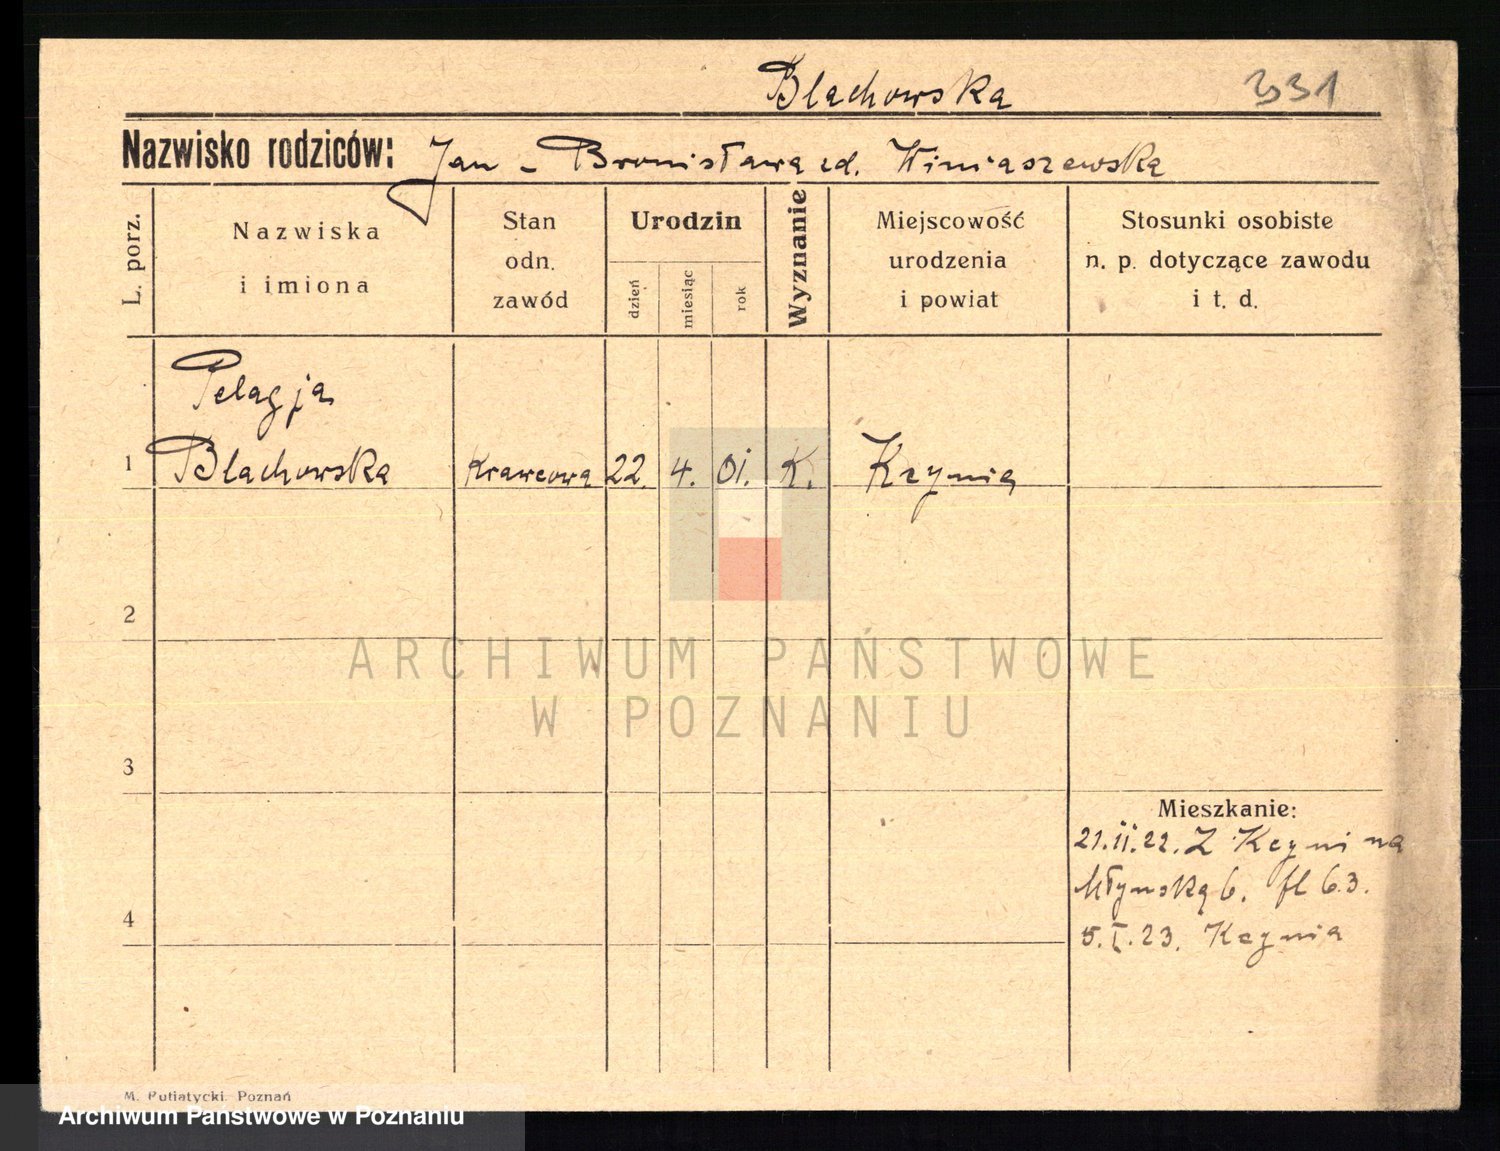 Blachowska 331
Nazwisko rodziców: Jan - Bronisława zd. Winiaszewska
L. porz.
Nazwiska
i imiona
Stan
odn.
zawód
Urodzin
dzień
miesiąc
rok
Wyznanie
Miejscowość
urodzenia
i powiat
Stosunki osobiste
n. p. dotyczące zawodu
i t. d.
Pelagja
1 Blachowska Krawcowa 22. 4. 01. K. Kcynia
2
ARCHIWUM PAŃSTWOWE
W POZNANIU
3
Mieszkanie:
21.11.22. Z Kcyni na
Młynską 6. fl 63.
4
5.I.23. Kcynia
M. Putiatycki. Poznań
Archiwum Państwowe w Poznaniu